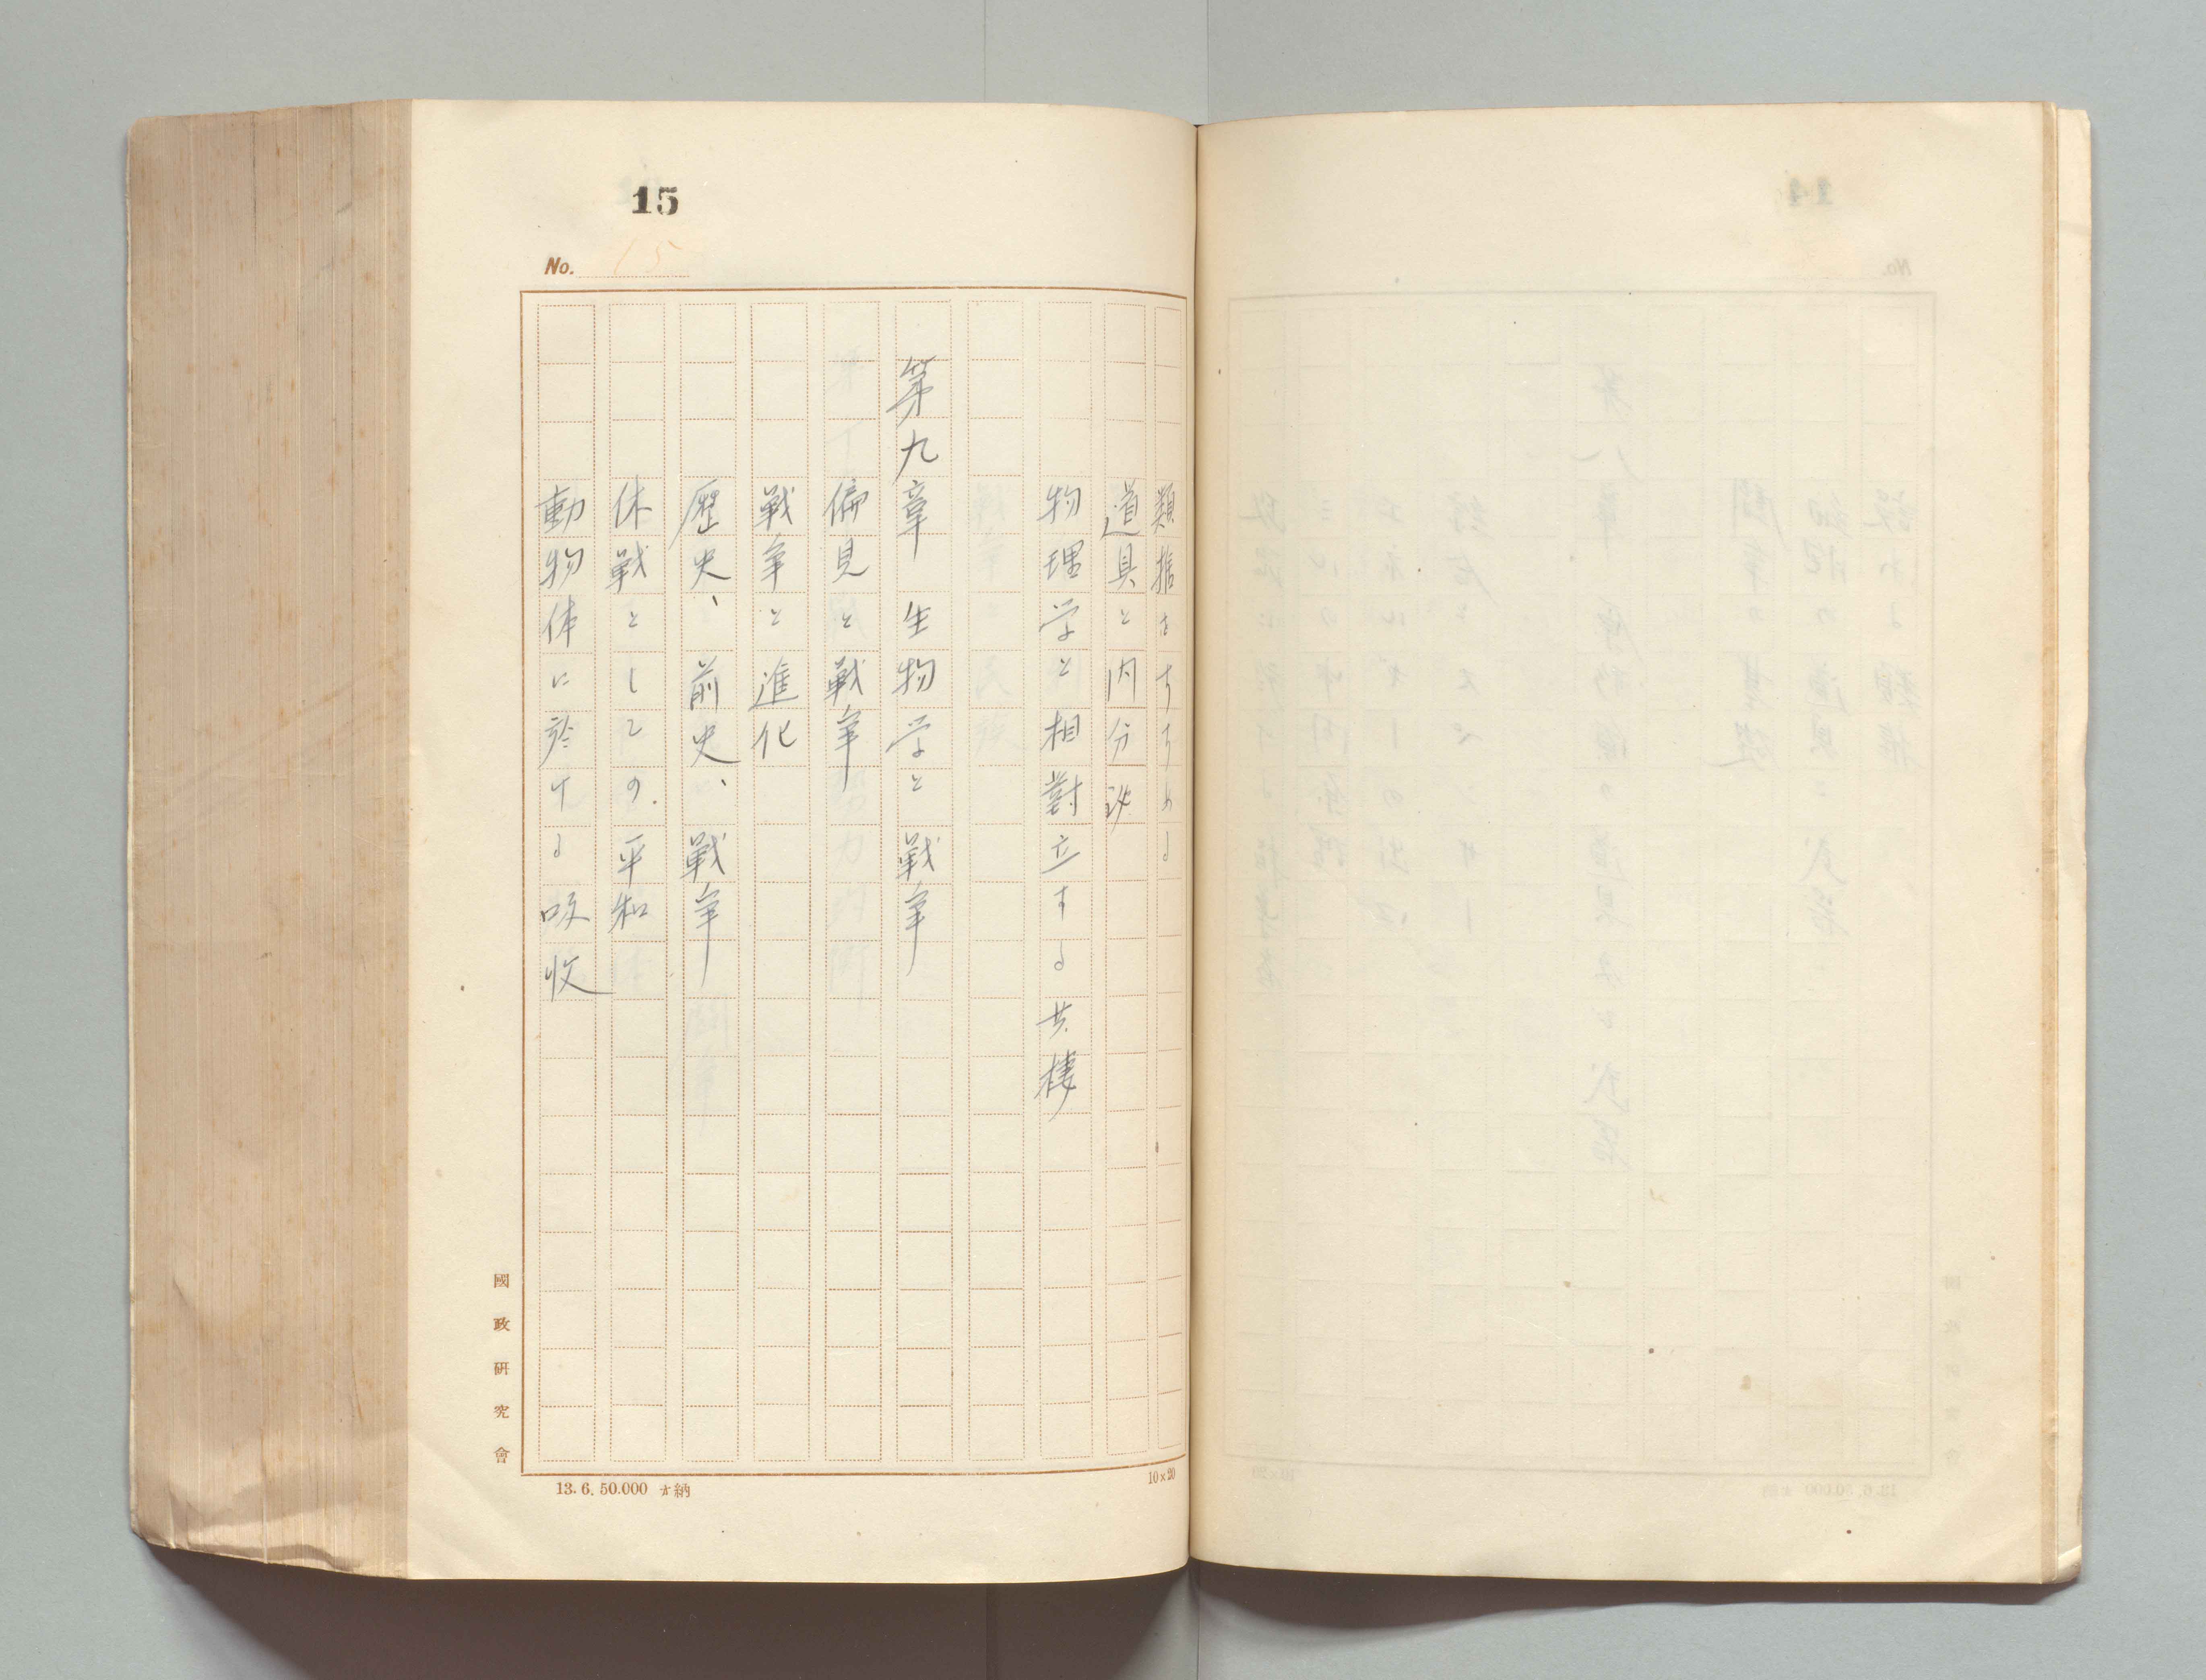 15
No. 15
類推をすすめる
道具と内分泌
物理学と相對立する共棲
第九章 生物学と戦争
偏見と戦争
戦争と進化
歴史、前史、戦争
休戦としての平和
動物体に於ける吸收
國政研究會
13.6.50.000 納
10×20